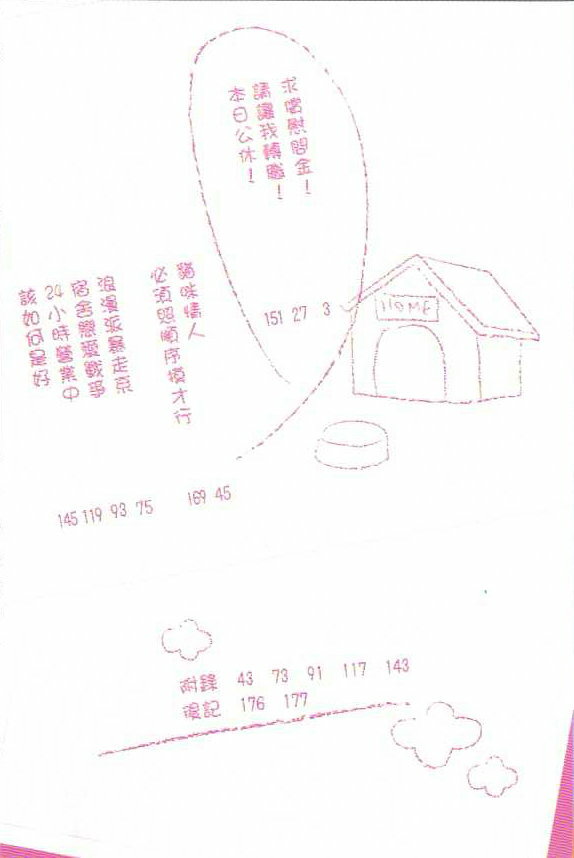 求償慰問金！
請讓我轉職！
本日公休！
3
27
151
HOME
貓咪情人
必須照順序摸才行
45
169
浪漫版暴走族
宿舍戀愛戰爭
24小時營業中
該如何是好
75
93
119
145
附錄 43 73 91 117 143
後記 176 177